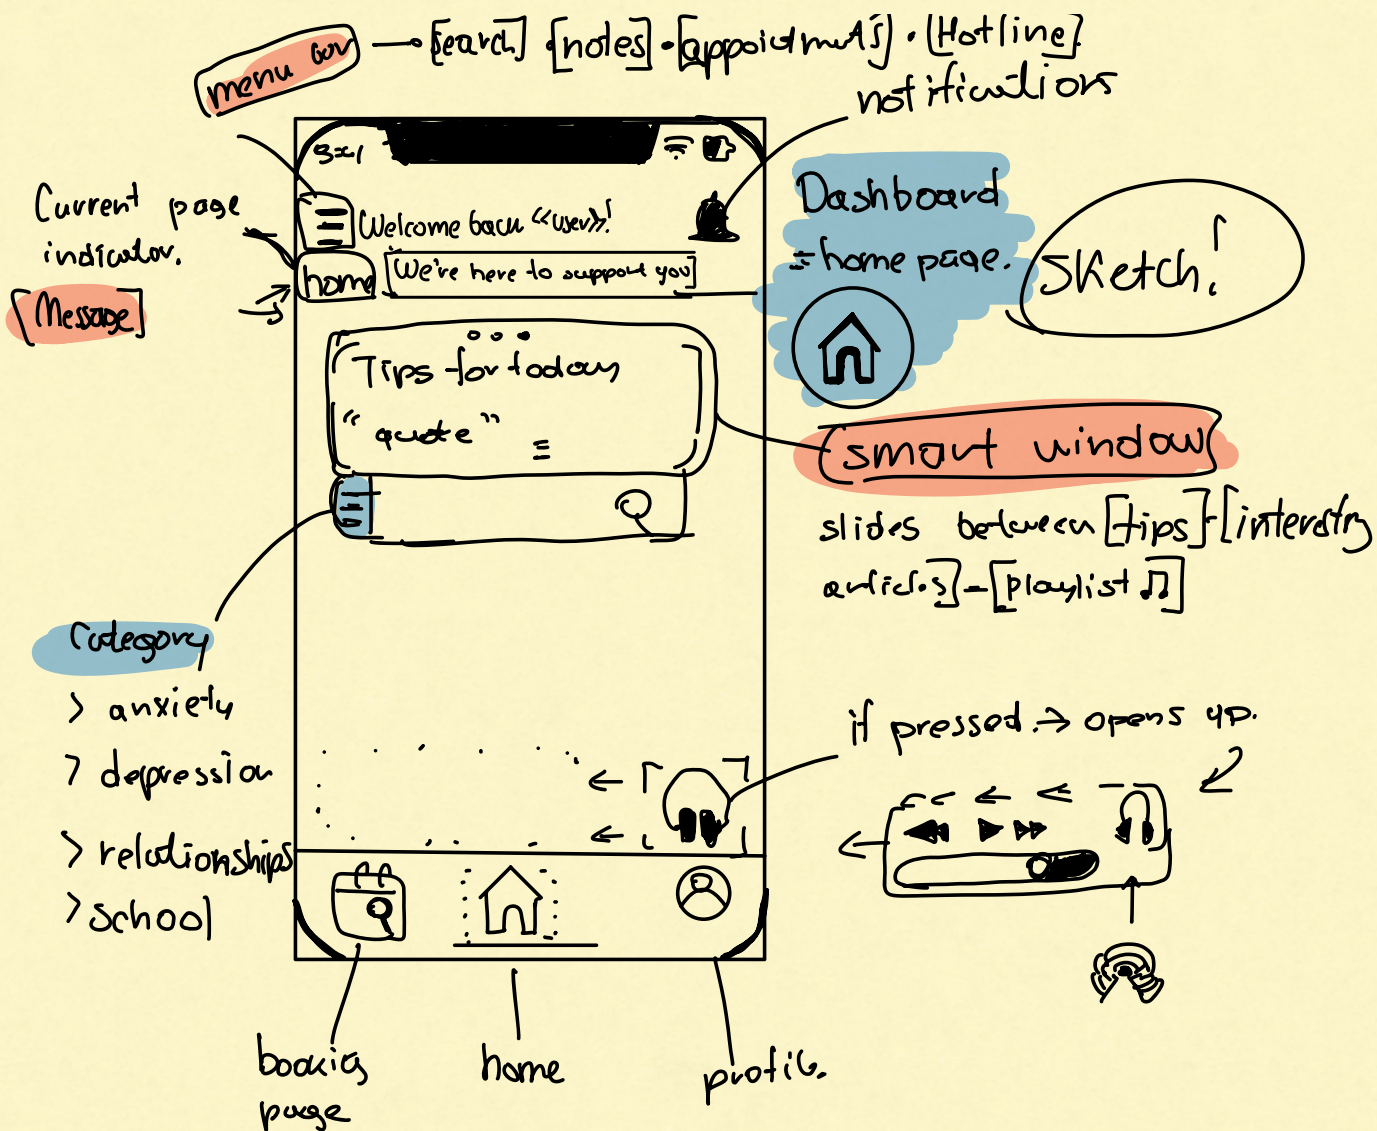 menu bar → [search] · [notes] · [appointments] · [Hotline]
notifications
Current page
indicator.
[Message]
Welcome back «user»!
home
[We're here to support you]
Dashboard
= home page.
Sketch!
Tips for today
" quote "
smart window
slides between [tips] - [
articles] - [playlist ♫]
Category
> anxiety
> depression
> relationships
> school
if pressed. → opens up.
booking
page
home
profile.